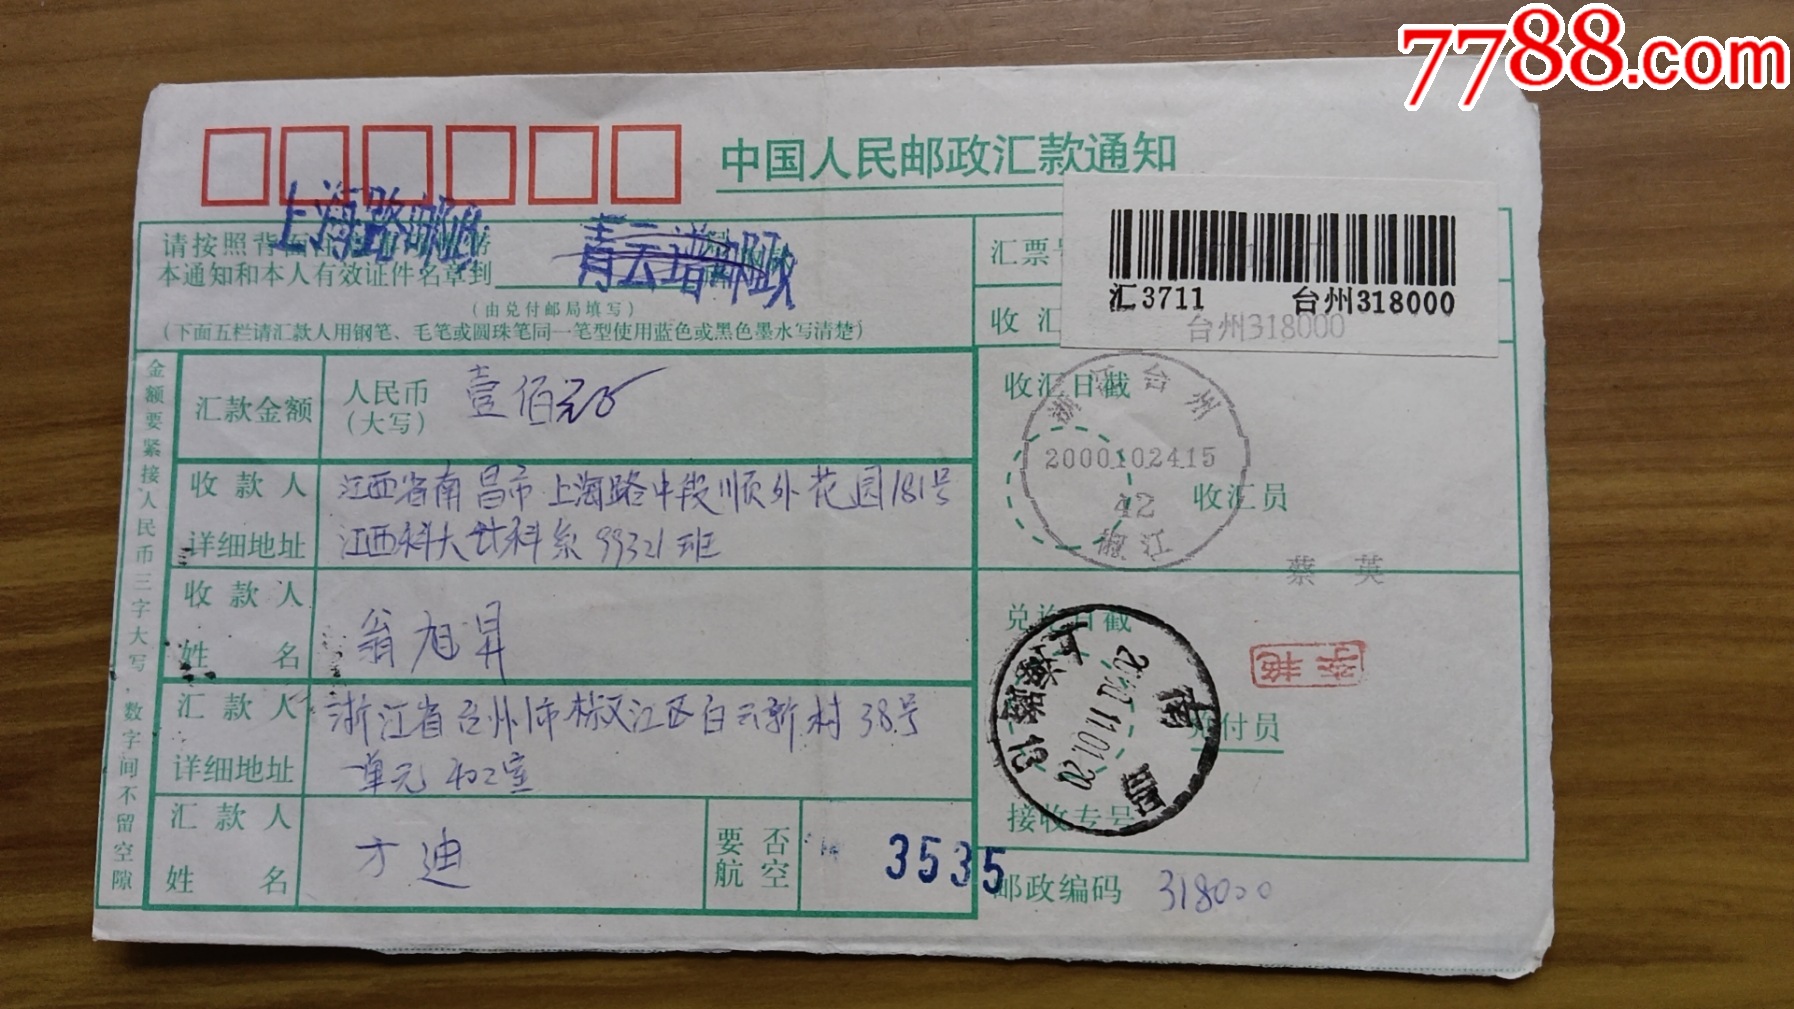 7788.com
中国人民邮政汇款通知
上海路邮政
青云谱邮政
请按照背面
本通知和本人有效证件名章到
(由兑付邮局填写)
(下面五栏请汇款人用钢笔、毛笔或圆珠笔同一笔型使用蓝色或黑色墨水写清楚)
汇票号
汇3711 台州318000
台州318000
收汇
金额要紧接人民币三字大写,数字间不留空隙
汇款金额
人民币
(大写)
壹佰元
收款人
详细地址
江西省南昌市上海路中段顺外花园181号
江西科大 科系99321班
收款人
姓名
翁旭昇
汇款人
详细地址
浙江省台州市椒江区白云新村38号
一单元402室
汇款人
姓名
方迪
要否
航空
3535
收汇日戳
浙江台州
2000.10.24.15
42
椒江
收汇员
蔡英
兑讫日戳
南昌
上海路
13
李艳
兑付员
接收专号
邮政编码 318000